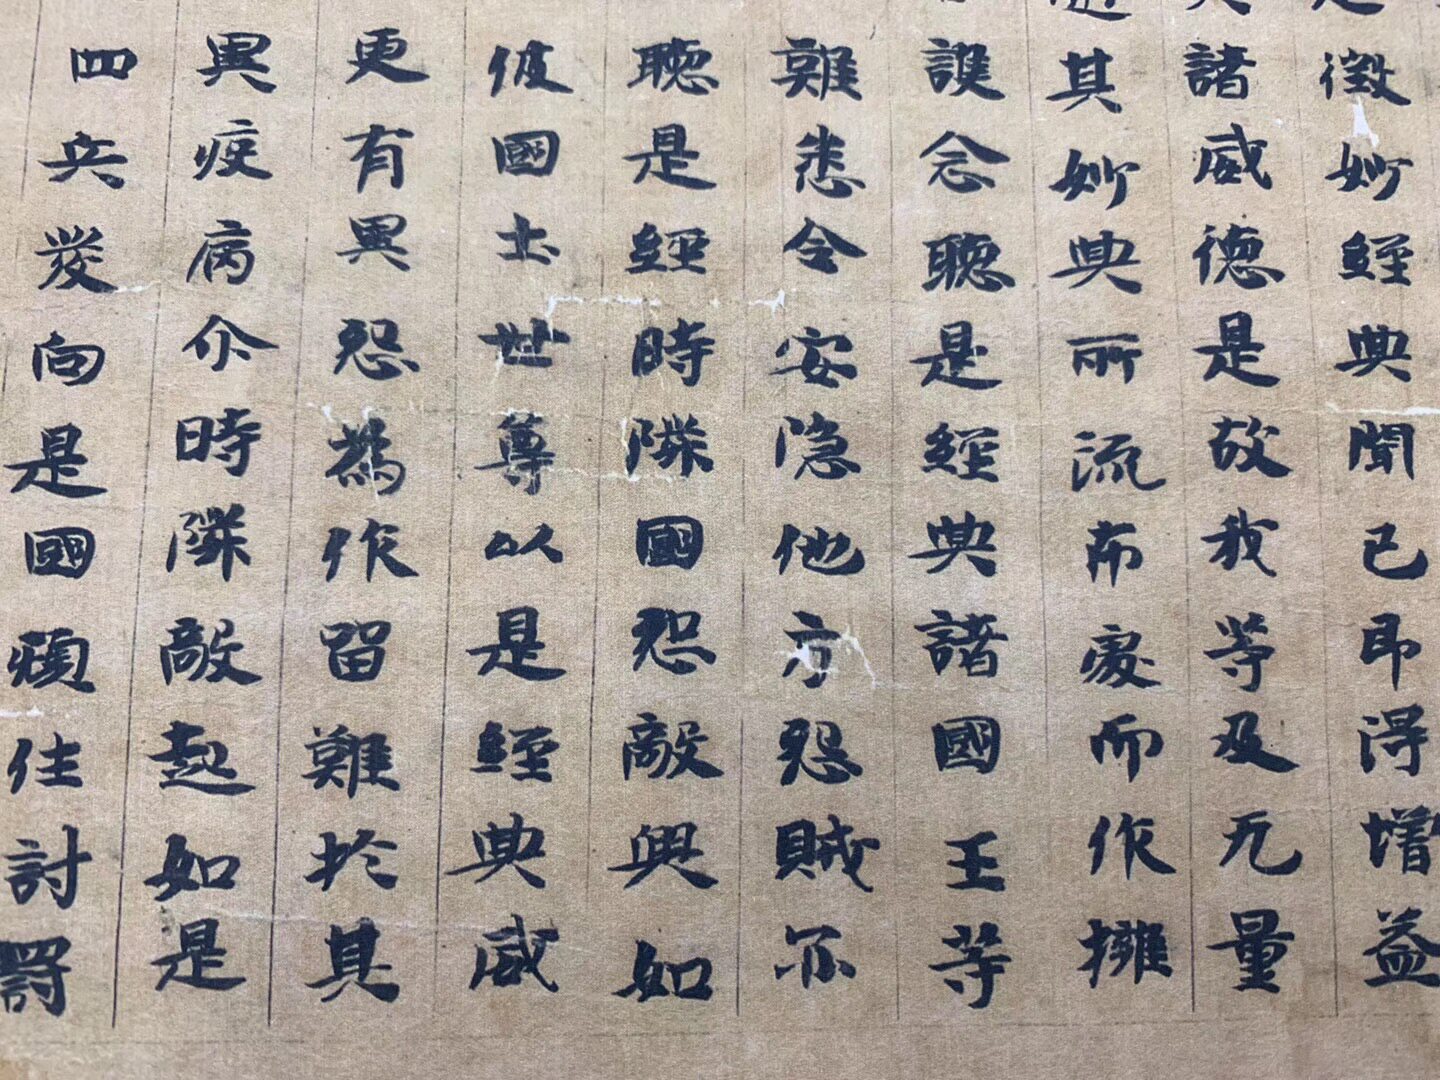 微妙經典聞已即得增益
諸威德是故我等及无量
其妙典所流布處而作擁
護念聽是經典諸國王等
難悉令安隐他方怨賊亦
聽是經時隣國怨敵興如
彼國土世尊以是經典威
更有異怨為作留難於其
異疫病尒時隣敵起如是
四兵發向是國往討罰